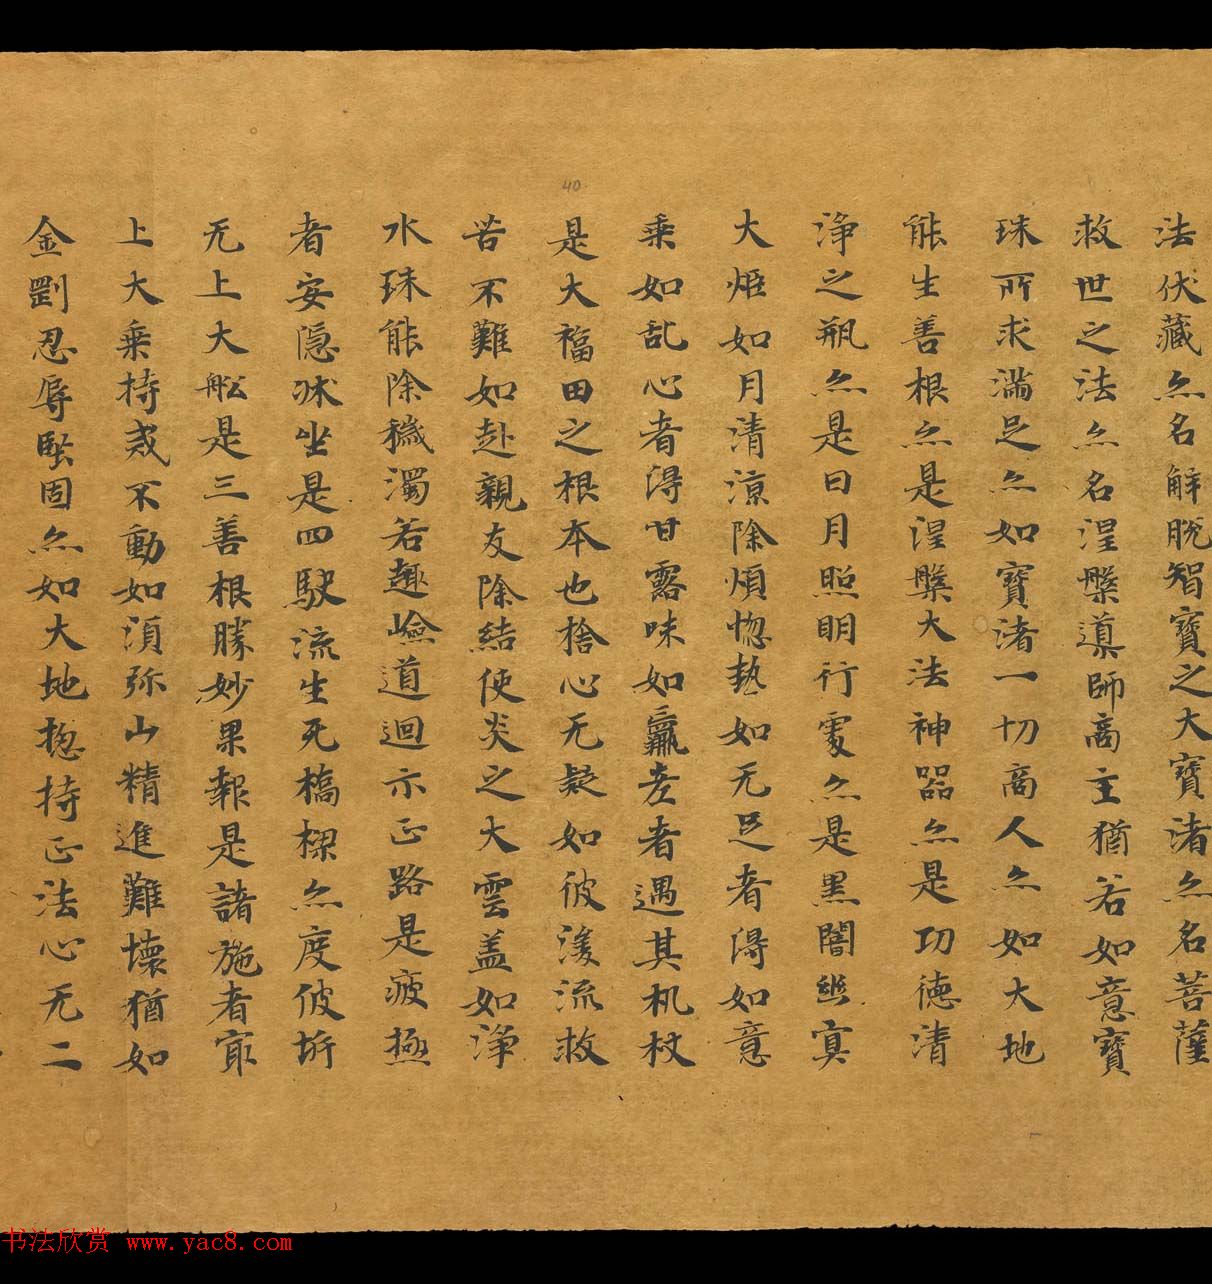 法伏藏亦名解脫智寶之大寶渚亦名菩薩
救世之法亦名涅槃導師商主猶若如意寶
珠所求滿足亦如寶渚一切商人亦如大地
能生善根亦是涅槃大法神器亦是功德清
淨之瓶亦是日月照明行處亦是黑闇幽冥
大炬如月清涼除煩惚熱如无足者得如意
乘如乱心者得甘露味如羸老者遇其机杖
是大福田之根本也捨心无疑如彼漫流救
苦不難如赴親友除結使炎之大雲盖如淨
水珠能除穢濁若趣嶮道迴示正路是疲極
者安隱床坐是四駛流生死橋樑亦度彼岸
无上大舩是三善根勝妙果報是諸施者㝡
上大乘持戒不動如須弥山精進難壞猶如
金剛忍辱堅固亦如大地揔持正法心无二
40
书法欣赏 www.yac8.com